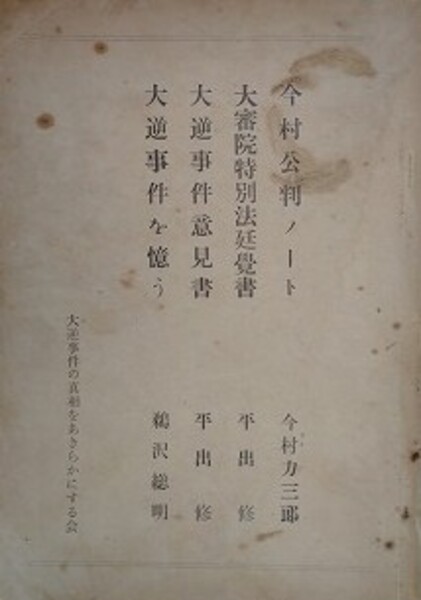 今村公判ノート 今村力三郎
大審院特別法廷覺書 平出修
大逆事件意見書 平出修
大逆事件を憶う 鵜沢総明
大逆事件の真相をあきらかにする会